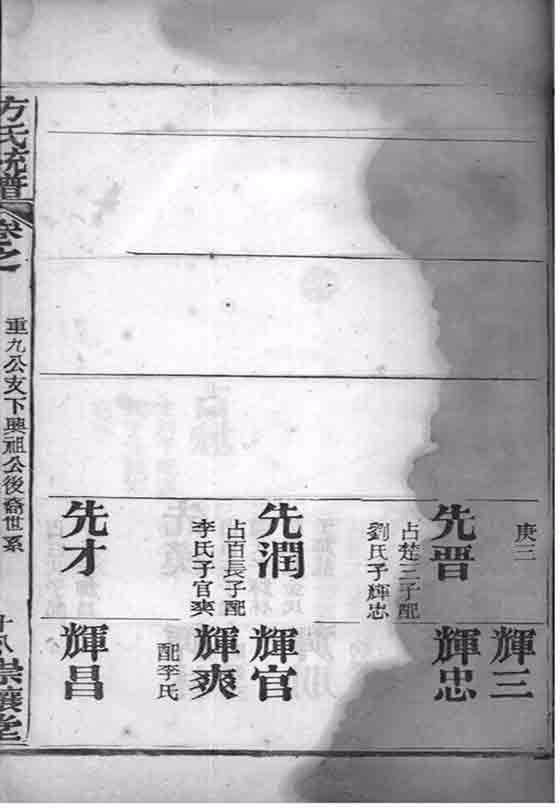 庚三
先晋
占楚三子配
劉氏子輝忠
先潤
占百長子配
李氏子官爽
先才
輝三
輝忠
輝官
輝爽
配李氏
輝昌
方氏統譜
卷之
重九公支下興祖公後裔世系
十八
崇讓堂